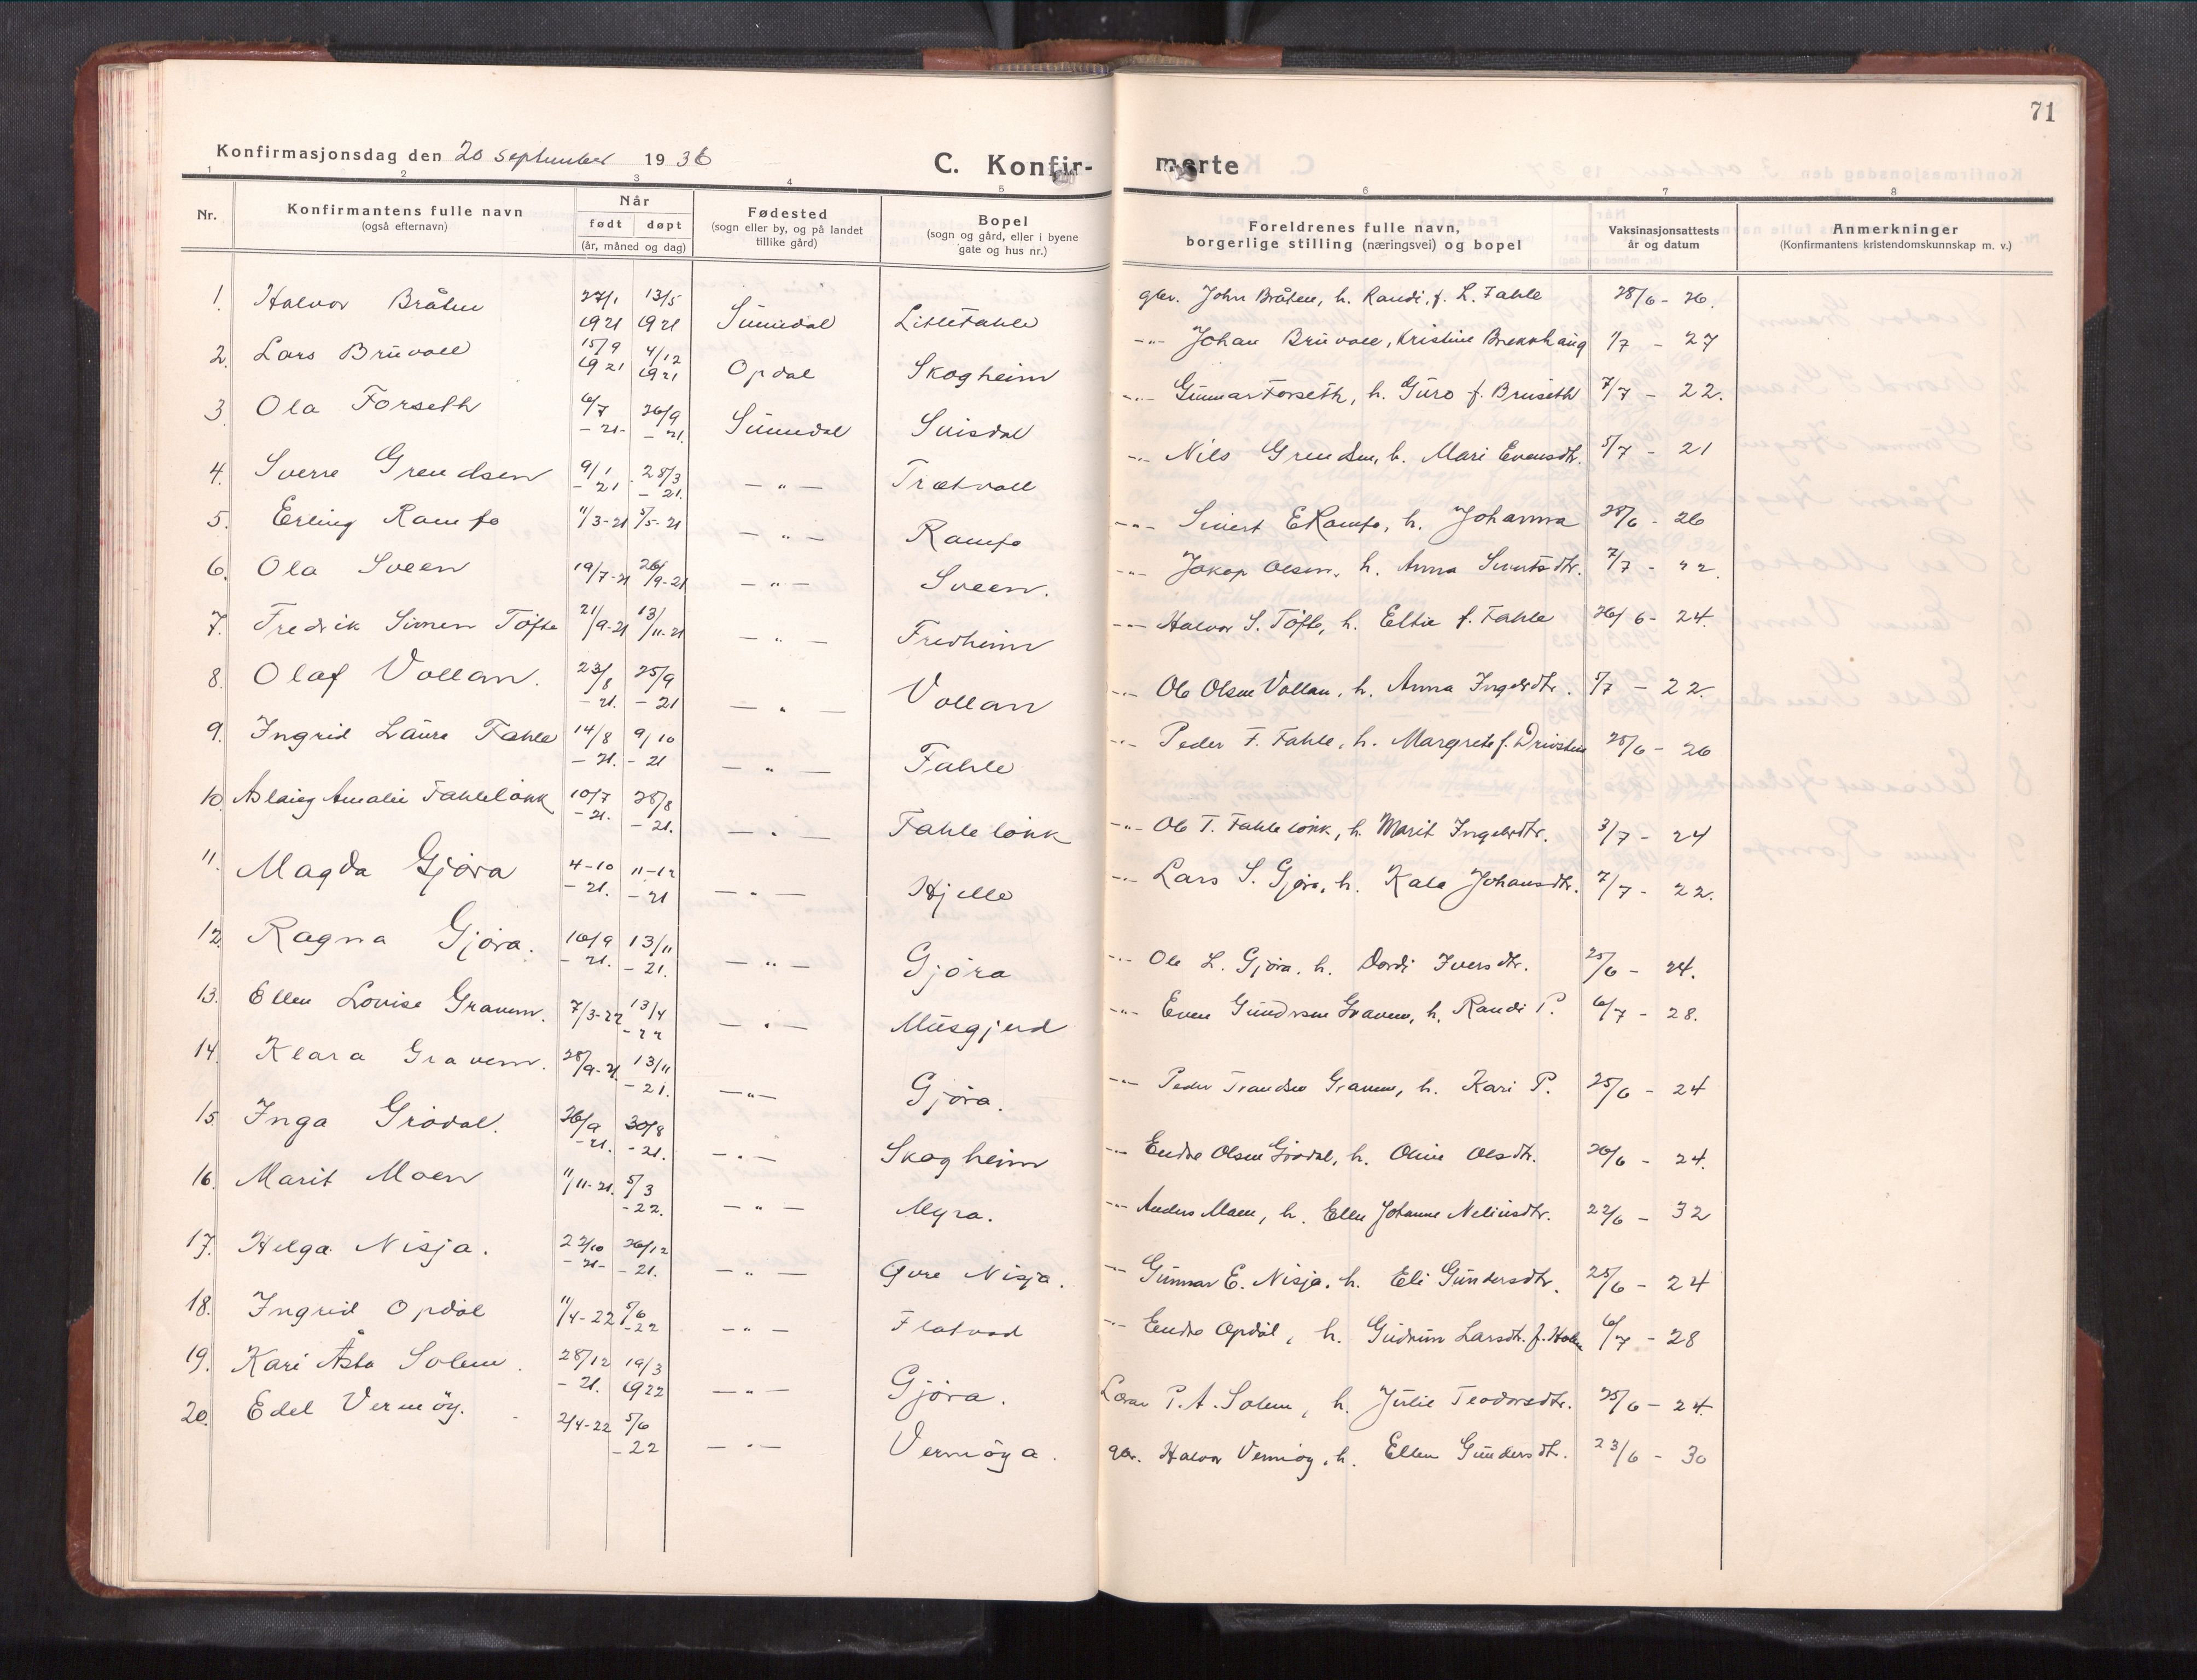 71
Konfirmasjonsdag den 20 september 1936
C. Konfir- merte
1 2 3 4 5 6 7 8
Nr. Konfirmantens fulle navn (også efternavn) Når født døpt (år, måned og dag) Fødested (sogn eller by, og på landet tillike gård) Bopel (sogn og gård, eller i byene gate og hus nr.) Foreldrenes fulle navn, borgerlige stilling (næringsvei) og bopel Vaksinasjonsattests år og datum Anmerkninger (Konfirmantens kristendomskunnskap m. v.)
1. Halvor Bråten 27/1 1921 13/5 1921 Sunndal Litlefahle gbr. John Bråten, h. Randi, f. L. Fahle 28/6 - 26.
2. Lars Bruvoll 15/9 1921 4/12 1921 Opdal Skogheim -"- Johan Bruvoll, Kristine Brekkhaug 1/7 - 27
3 Ola Forseth 6/7 - 21- 26/9 - 21. Sunndal Snisdal -"- Gunnar Forseth, h. Guro f. Bruseth 7/7 - 22.
4. Sverre Grendsen 9/1 - 21 28/3 - 21. — " — Trætvoll -"- Nils Grendsen, h. Mari Evensdtr. 5/7 - 21
5. Erling Romfo 11/3-21 5/5-21 — " — Romfo -"- Sivert E Romfo, h. Johanna 28/6 - 26
6. Ola Sveen 19/7-21 26/9-21 — " — Sveen. -"- Jakop Olsen, h. Anna Sivertsdtr. 7/7 - 22.
7. Fredrik Simen Tofte 21/9-21 13/11-21 — " — Fredheim -"- Halvor S. Tofte, h. Eltie f. Fahle 26/6 - 24.
8. Olaf Vollan. 23/8 - 21. 25/9 - 21 — " — Vollan -"- Ole Olsen Vollan, h. Anna Ingebrdtr. 5/7 - 22.
9. Ingrid Laura Fahle 14/8 - 21. 9/10 - 21 — " — Fahle -"- Peder F. Fahle, h. Margrete f. Drivstuen 25/6 - 26
10. Aslaug Amalie Fahleløkk 10/7 - 21. 28/8 - 21. — " — Fahleløkk -"- Ole T. Fahleløkk, h. Marit Ingebrdtr. 3/7 - 24
11. Magda Gjøra 4-10 - 21. 11-12 - 21 — " — Hjelle -"- Lars S. Gjøra, h. Kala Johansdtr. 7/7 - 22.
12. Ragna Gjøra. 16/9 - 21. 13/11 - 21. — " — Gjøra -"- Ole L. Gjøra, h. Dordi Iversdtr. 25/6 - 24.
13. Ellen Lovise Gravem. 7/3-22 13/4 - 22 — " — Musgjerd -"- Even Gundersen Gravem, h. Randi P. 6/7 - 28.
14. Klara Gravem. 28/9-21. 13/11 - 21. — " — Gjøra. -"- Peder Trondsen Gravem, h. Kari P. 25/6 - 24
15. Inga Grødal. 26/9 - 21. 30/8 - 21. — " — Skogheim -"- Endre Olsen Grødal, h. Oline Olsdtr. 26/6 - 24.
16. Marit Moen 11/11-21. 5/3 - 22. — " — Myra. -"- Anders Moen, h. Ellen Johanne Neliusdtr. 22/6 - 32
17. Helga Nisja. 22/10 - 21- 26/12 - 21. — " — Øvre Nisja. -"- Gunnar E. Nisja, h. Eli Gundersdtr. 25/6 - 24
18. Ingrid Opdøl 11/4-22 5/6 - 22 — " — Flatvad -"- Endre Opdøl, h. Gudrun Larsdtr. f. Holm 6/7 - 28
19. Kari Åsta Solem. 28/12 - 21. 19/3 1922 — " — Gjøra. Lærer P. A. Solem, h. Julie Teodorsdtr. 25/6 - 24.
20. Edel Vermøy. 2/4-22 5/6 - 22 — " — Vermøya. gbr. Halvor Vermøy, h. Ellen Gundersdtr. 23/6 - 30